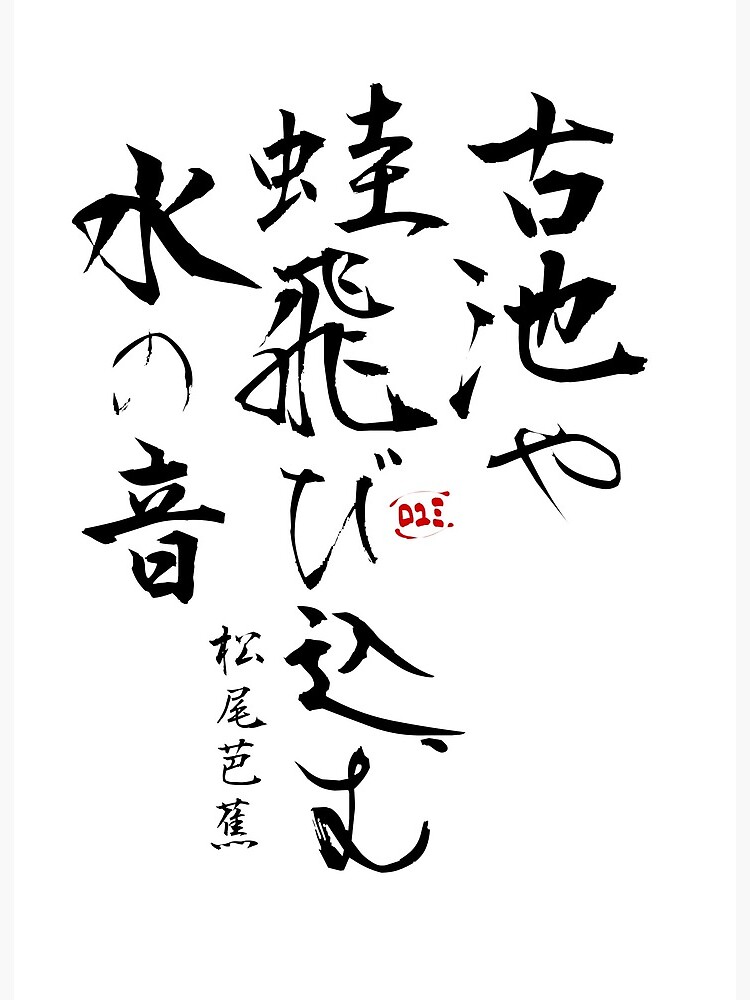 古池や
蛙飛び込む
水の音
松尾芭蕉